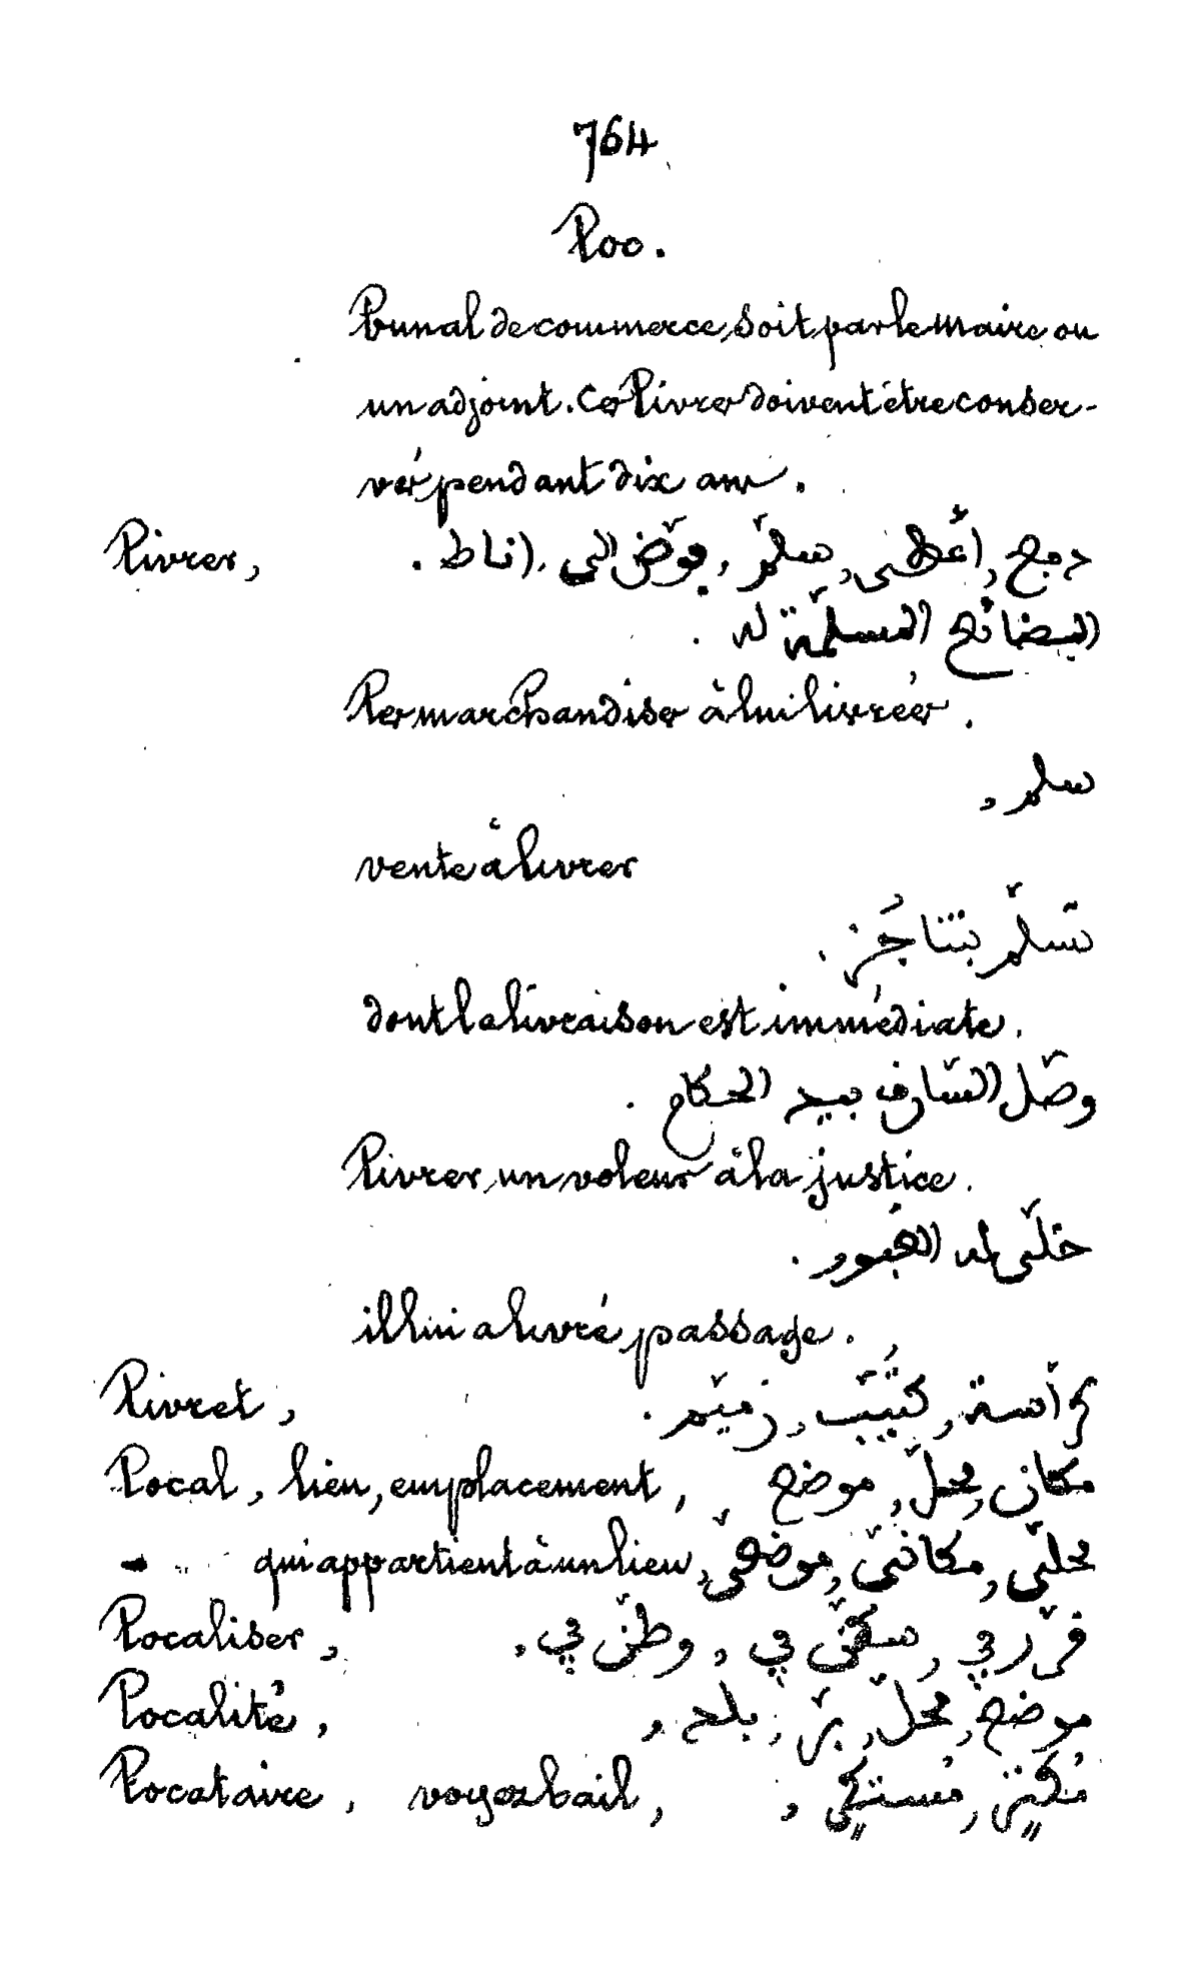 764
Loc.
bunal de commerce, soit par le Maire ou
un adjoint. Ces Livres doivent être conser-
vés pendant dix ans.
Livrer, دفع, اعْطى, سلّم, فوّض الى, اناط.
البضائع المسلّمة له.
Les marchandises à lui livrées.
سلم,
vente à livrer
تسلّم بتناجُز.
dont la livraison est immédiate.
وصّل السّارق بيد الحكام.
Livrer un voleur à la justice.
خلّى له العبور.
il lui a livré passage.
Livret, كرّاسة, كتيّب, زميّم.
Local, lieu, emplacement, مكان, محلّ, موضع
qui appartient à un lieu, محلّي, مكانيّ, موضعيّ
Localiser, قرّر في, سكّن في, وطّن في,
Localité, موضع, محلّ, برّ, بلد,
Locataire, voyez bail, مُكتر, مُستكر,